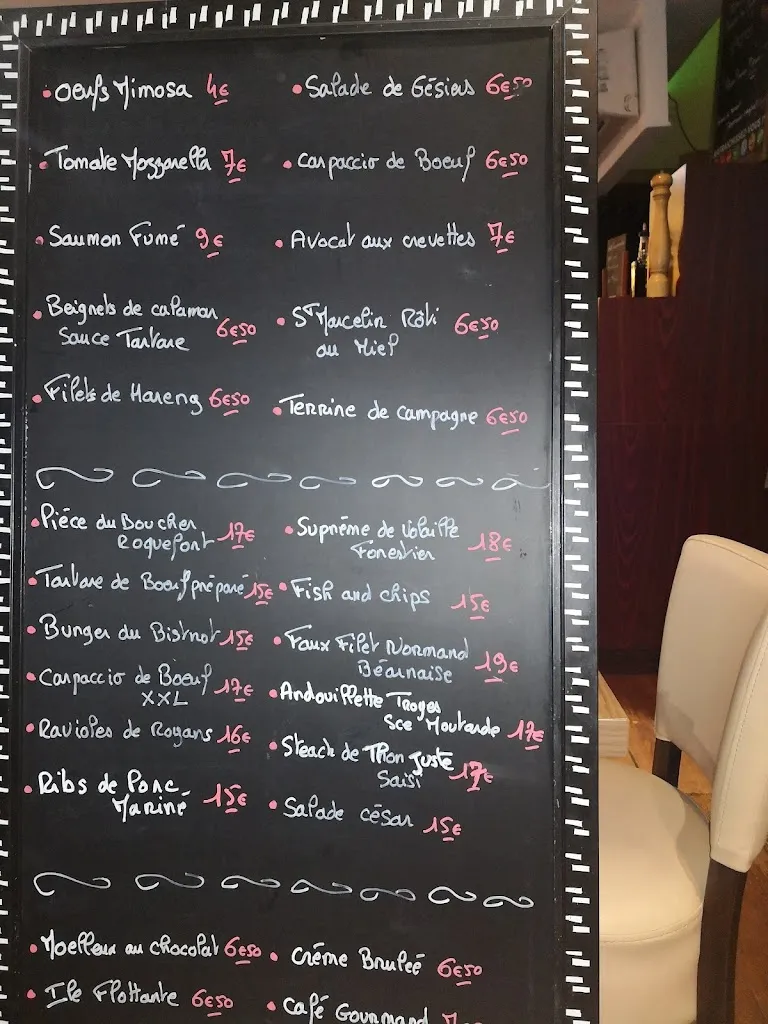 • Oeufs Mimosa 4€
• Tomate Mozzarella 7€
• Saumon Fumé 9€
• Beignets de calamar 6€50
Sauce Tartare
• Filets de Hareng 6€50
• Salade de Gésiers 6€50
• Carpaccio de Boeuf 6€50
• Avocat aux crevettes 7€
• St Marcelin Rôti 6€50
au Miel
• Terrine de campagne 6€50
• Piéce du Boucher 17€
Roquefort
• Tartare de Boeuf préparé 15€
• Burger du Bistrot 15€
• Carpaccio de Boeuf 17€
XXL
• Ravioles de Royans 16€
• Ribs de Porc 15€
Mariné
• Suprême de Volaille 18€
Forestier
• Fish and chips 15€
• Faux Filet Normand 19€
Béarnaise
• Andouillette Troyes
Sce Moutarde 17€
• Steack de Thon Juste 17€
Saisi
• Salade césar 15€
• Moelleux au chocolat 6€50
• Ile Flottante 6€50
• Créme Bruleé 6€50
• Café Gourmand